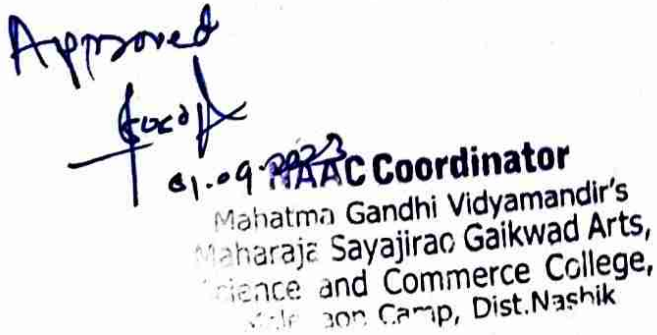 Approved
01.09.2023
NAAC Coordinator
Mahatma Gandhi Vidyamandir's
Maharaja Sayajirao Gaikwad Arts,
Science and Commerce College,
Camp, Dist.Nashik